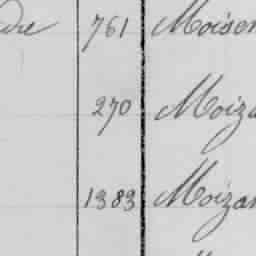 dre 761 Moison
270 Moiza
1383 Moizan